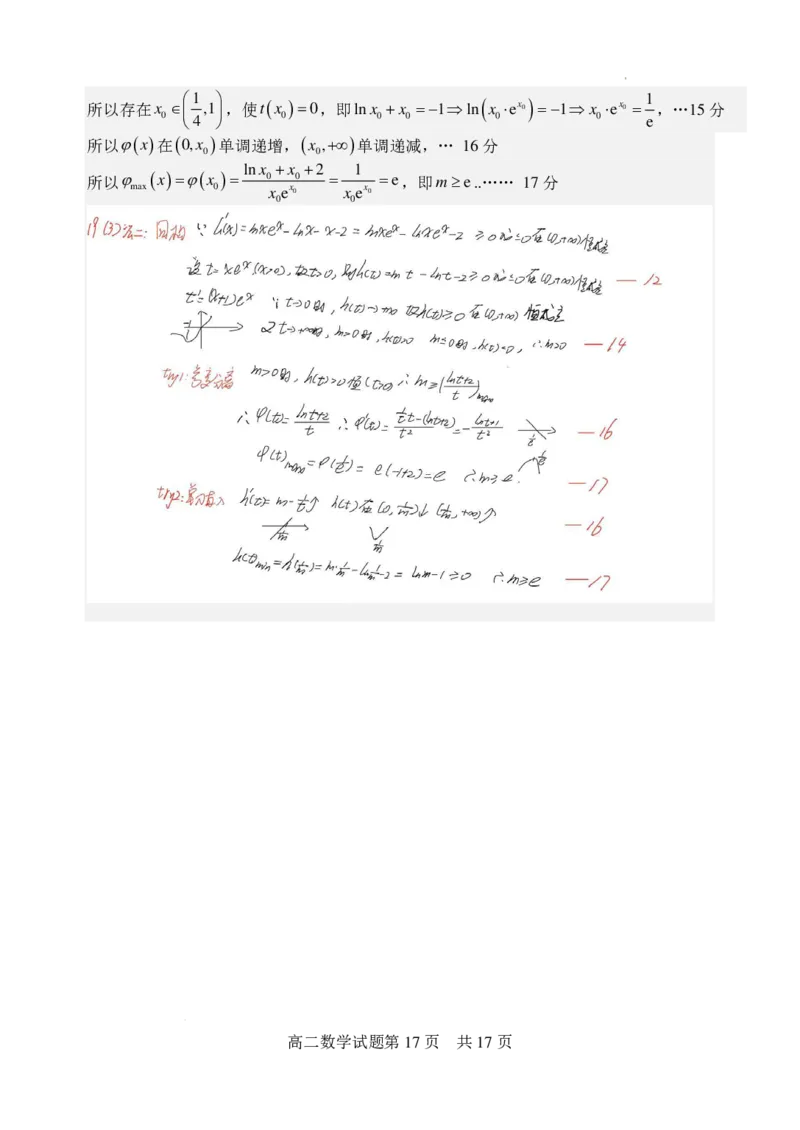 所以存在 x₀ ∈ (1/4, 1)，使 t(x₀) = 0，即 ln x₀ + x₀ = −1 ⇒ ln(x₀·e^{x₀}) = −1 ⇒ x₀·e^{x₀} = 1/e，…15 分
所以 φ(x) 在 (0, x₀) 单调递增，(x₀, +∞) 单调递减，… 16 分
所以 φmax(x) = φ(x₀) = (ln x₀ + x₀ + 2)/(x₀e^{x₀}) = 1/(x₀e^{x₀}) = e，即 m ≥ e ..…… 17 分
19 (3) 法二: 同构 ∵ h'(x) = mxe^x − lnx − x − 2 = mxe^x − lnxe^x − 2 ≥ 0 或 ≤ 0 在 (0,+∞) 恒成立
设 t = xe^x (x>0), 故 t>0, 则 h(t) = mt − lnt − 2 ≥ 0 或 ≤ 0 在 (0,+∞) 恒成立 — 12
t' = (x+1)e^x ∵ t→0 时, h(t)→+∞ 故 h(t) ≥ 0 在 (0,+∞) 恒成立
−1 又 t→+∞时, m>0时, h(t)>0 m≤0时, h(t)<0, ∴ m>0 — 14
try1: 参变分离 m>0时, h(t)≥0 恒(t>0) ∴ m ≥ ((lnt+2)/t)max
∴ φ(t) = (lnt+2)/t ∴ φ'(t) = (1/t·t − (lnt+2))/t² = −(lnt+1)/t² 1/e — 16
φ(t)max = φ(1/e) = e(−1+2) = e ∴ m ≥ e. 1/e — 17
try2: h'(t) = m − 1/t ↑ h(t) 在 (0, 1/m) ↓ (1/m, +∞) ↑
1/m 1/m — 16
h(t)min = h(1/m) = m·1/m − ln1/m − 2 = lnm − 1 ≥ 0 ∴ m ≥ e — 17
高二数学试题第 17 页 共 17 页